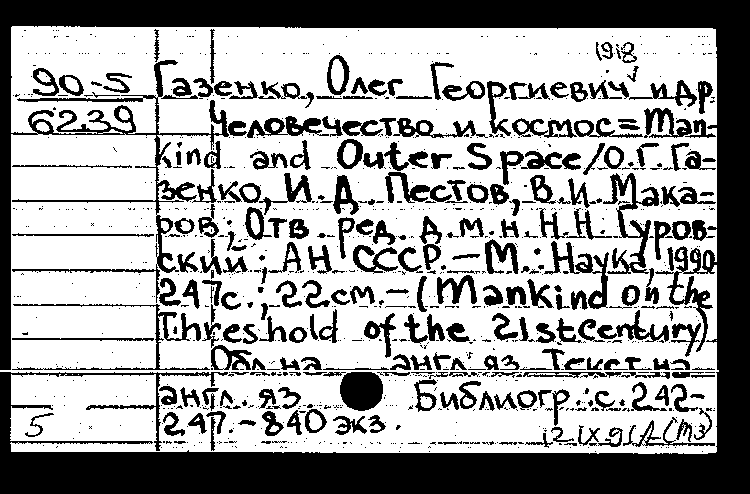 1918
90-5 Газенко, Олег Георгиевич и др
6239 Человечество и космос=Man-
kind and Outer Space/О.Г.Га-
зенко, И.Д.Пестов, В.И.Мака-
ров; Отв. ред. д.м.н. Н.Н.Гуров-
ский; АН СССР.—М.: Наука, 1990
247с.; 22см.—(Mankind on the
Threshold of the 21st century)
Обл на англ яз Текст на
англ. яз. Библиогр.: с.242-
5 247.-840 экз.